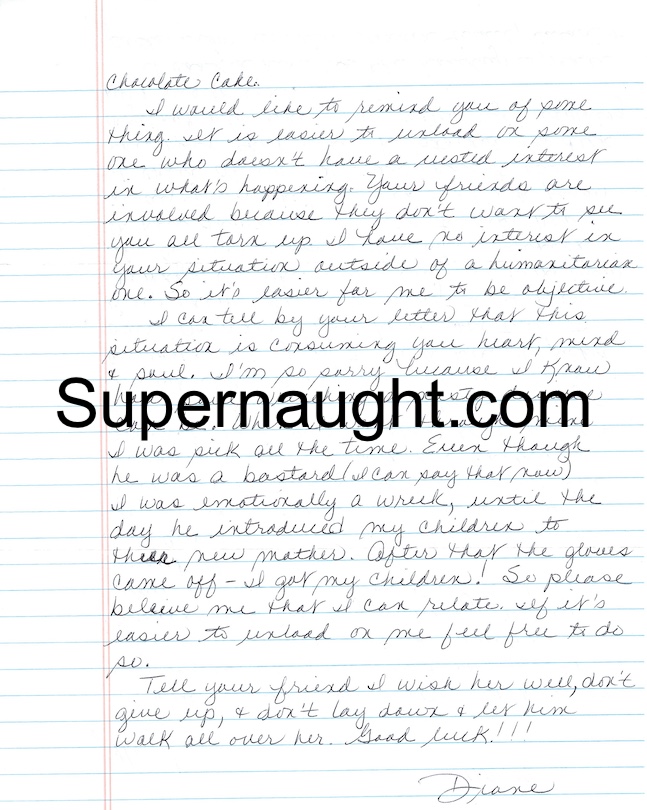 Chocolate Cake.
I would like to remind you of some
thing. It is easier to unload on some
one who doesn't have a vested interest
in what's happening. Your friends are
involved because they don't want to see
you all torn up. I have no interest in
your situation outside of a humanitarian
one. So it's easier for me to be objective.
I can tell by your letter that this
situation is consuming you heart, mind
& soul. I'm so sorry because I know
Supernaught.com
I was sick all the time. Even though
he was a bastard (I can say that now)
I was emotionally a wreck, until the
day he introduced my children to
their new mother. After that the gloves
came off - I got my children! So please
beleive me that I can relate. If it's
easier to unload on me feel free to do
so.
Tell your friend I wish her well, don't
give up, & don't lay down & let him
walk all over her. Good luck!!!
Diane